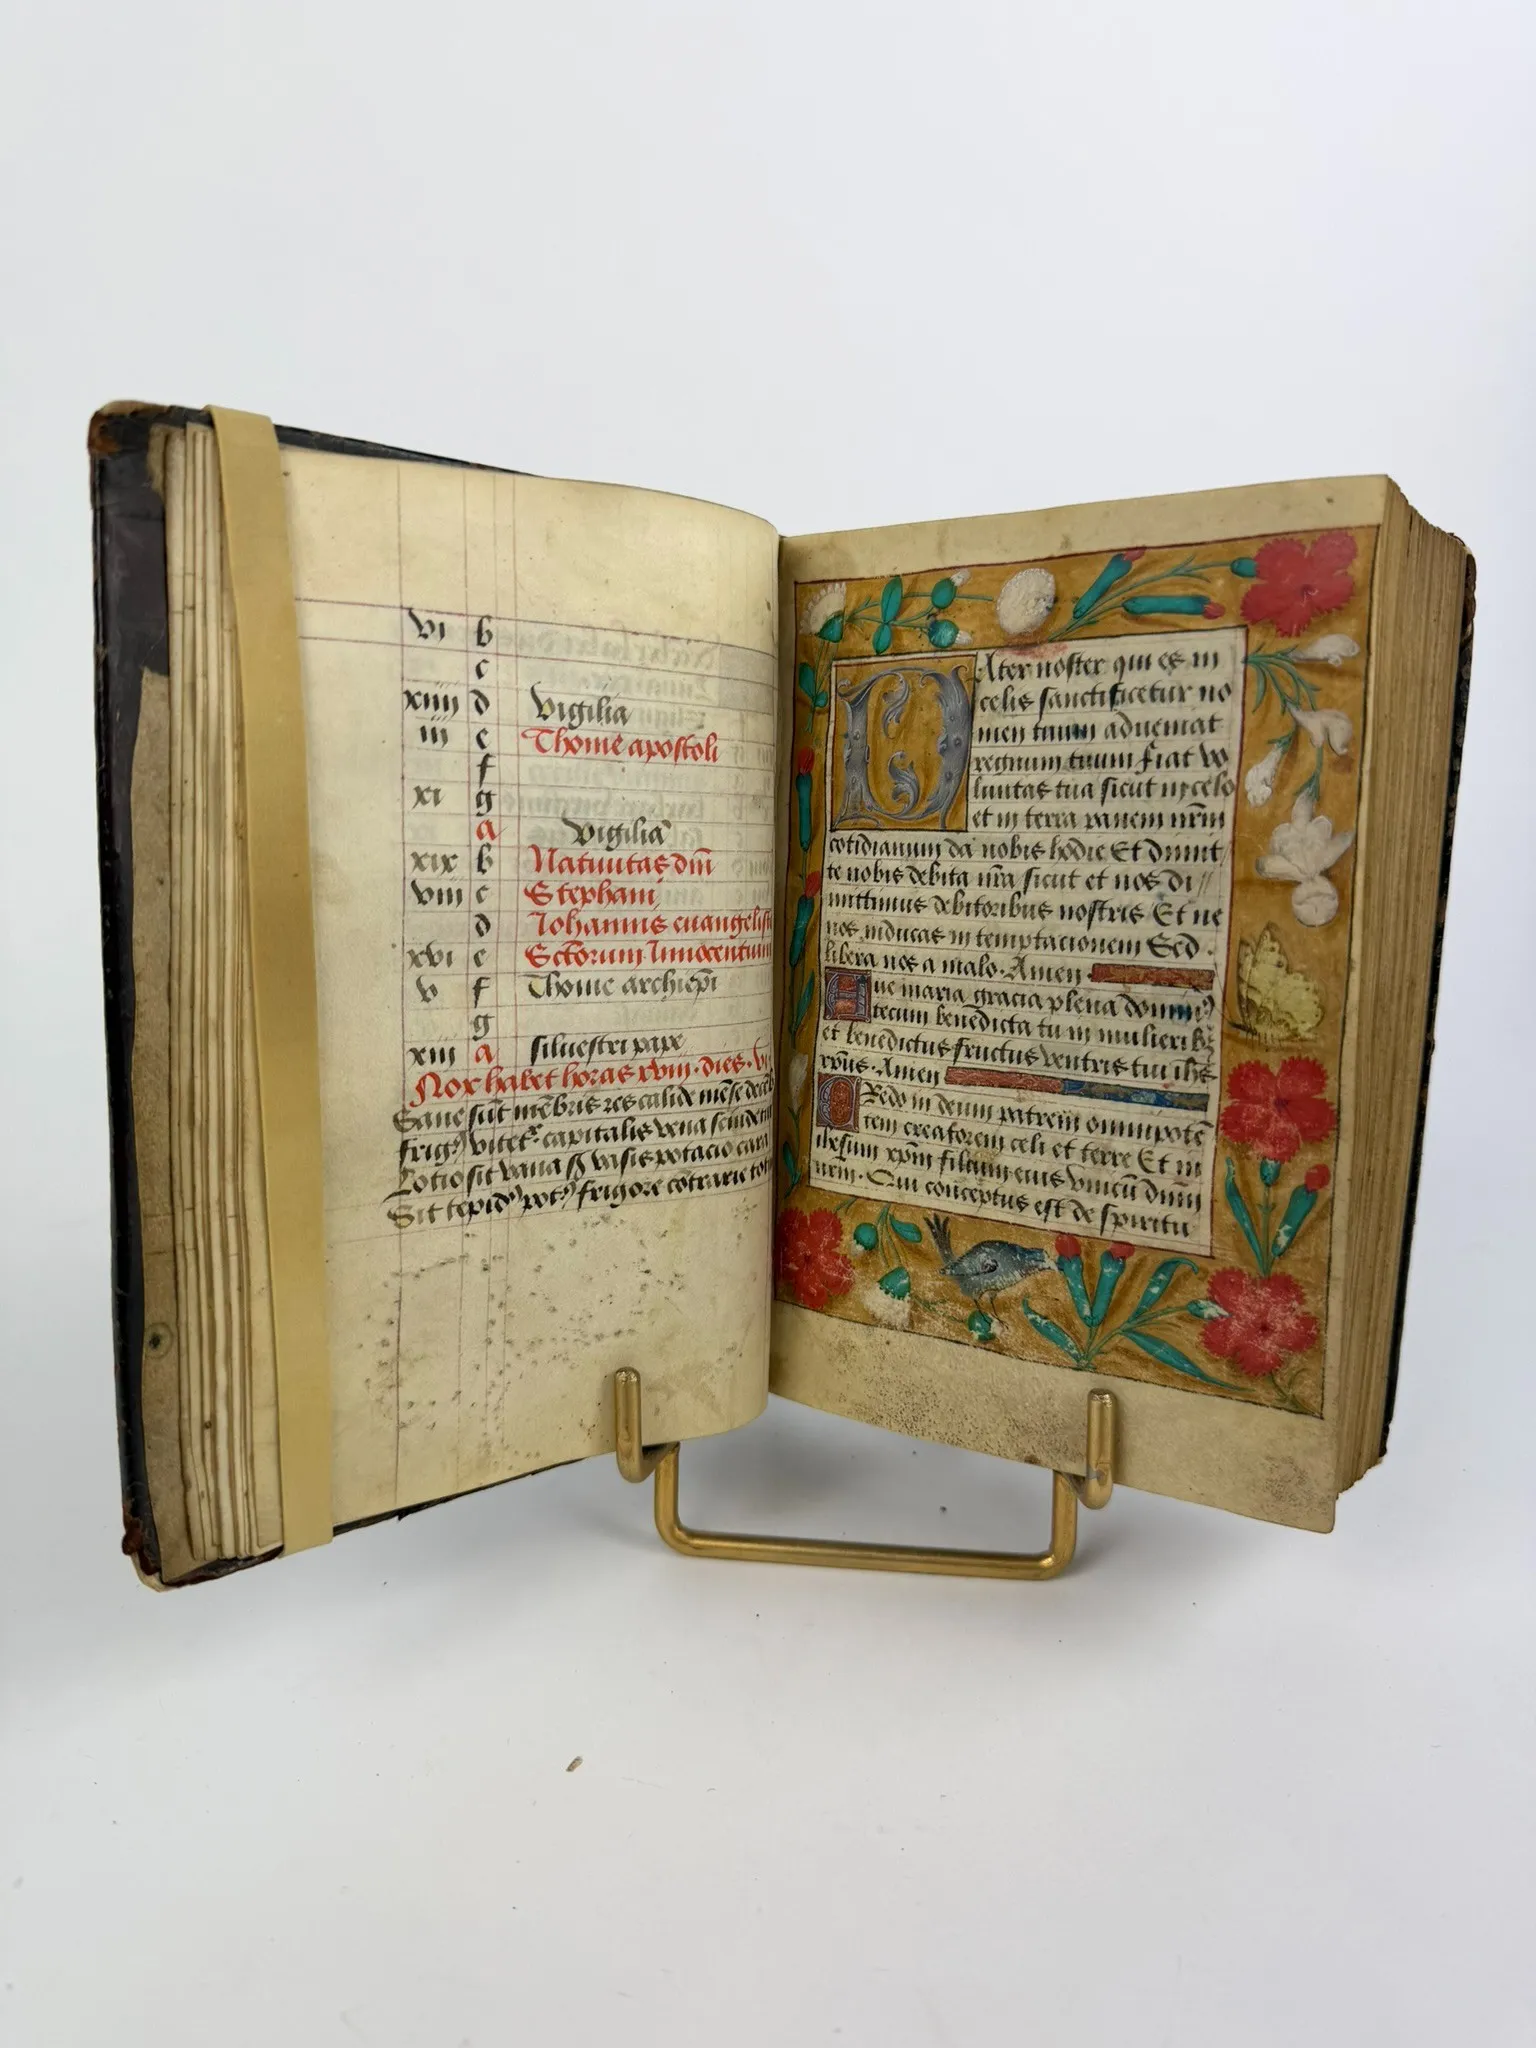 vi b
c
xiiii d Vigilia
iii e Thome apostoli
f
xi g
a Vigilia
xix b Natiuitas dm̄
viii c Stephani
d Iohannis euangeliste
xvi e Sctorum Innocentium
v f Thome archiepī
g
xiii a siluestri pape
Nox habet horas xviii. dies. vi
Sane sūt mēbris res calide mēse decēb
frig⁹ vitet². capitalis vena scindet
Lotio sit vana sʒ vasis potacio cara
Sit tepid⁹ pot⁹ frigore cōtrarie
Pater noster qui es in
celis sanctificetur no
men tuum adueniat
regnum tuum fiat vo
luntas tua sicut in celo
et in terra panem nr̄m
cotidianum da nobis hodie Et dimit/
te nobis debita nr̄a sicut et nos di//
mittimus debitoribus nostris Et ne
nos inducas in temptacionem Sed.
libera nos a malo. Amen
Aue maria gracia plena domin⁹
tecum benedicta tu in mulierib⁹
et benedictus fructus ventris tui ihs
xp̄us. Amen
Credo in deum patrem omnipotē
tem creatorem celi et terre Et in
ihesum xp̄m filium eius vnicū dm̄
nrm. Qui conceptus est de spiritu